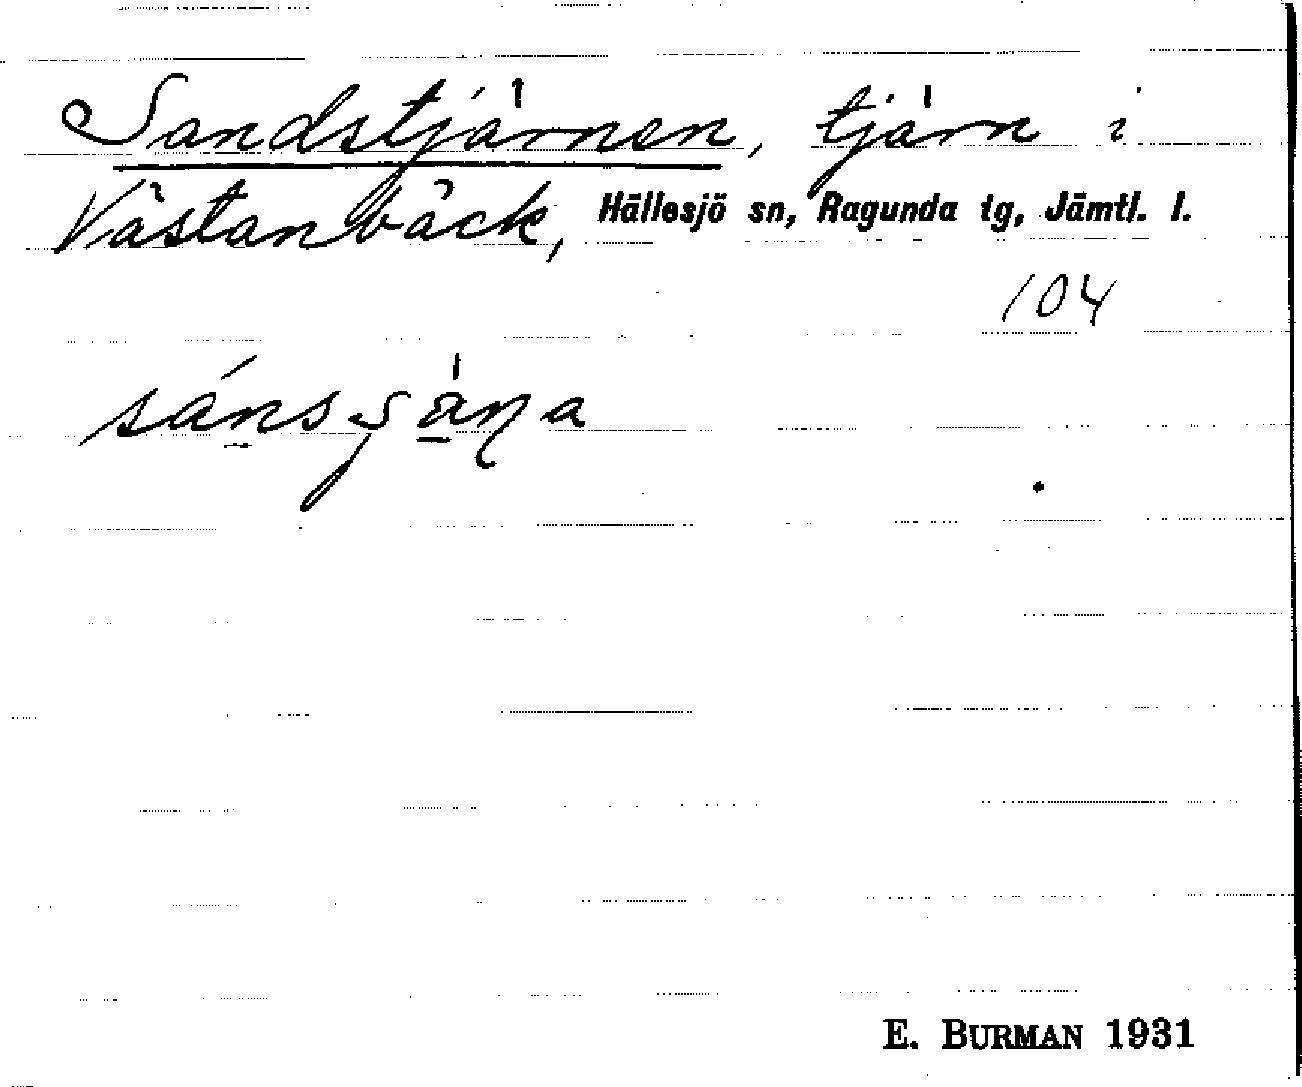 Sandstjärnen, tjärn i
Västanbäck, Hällesjö sn, Ragunda tg, Jämtl. l.
104
E. BURMAN 1931